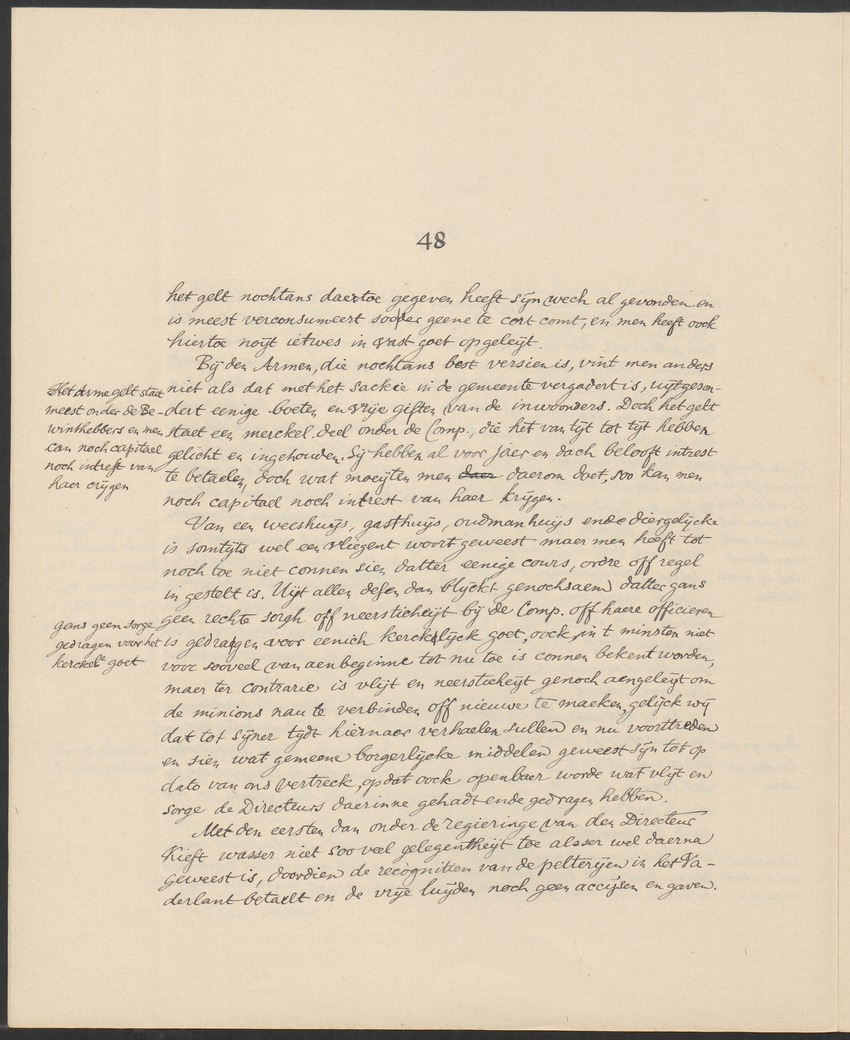 48
het gelt nochtans daertoe gegeven heeft sijn wech al gevonden en
is meest verconsumeert sodder geene te cort comt, en men heeft oock
hiertoe noijt ietwes in vast goet opgeleijt.
Bij den Armen, die nochtans best versien is, vint men anders
niet als dat met het sackie in de gemeente vergadert is, uijtgeson-
dert eenige boeten en vrije giften van de inwoonders. Doch het gelt
staet een merckel. deel onder de Comp., die hit van tijt tot tijt hebben
gelicht en ingehouden. Sij hebben al voor jaer en dach belooft intrest
te betaelen, doch wat moeijten men daer daerom doet, soo kan men
noch capitael noch intrest van haer krijgen.
Het Arme gelt staet
meest onder de Be-
winthebbers en men
can noch capitael
noch intrest van
haer crijgen
Van een weeshuijs, gasthuijs, oudmanhuijs ende diergelijcke
is somtijts wel een vliegent woort geweest maer men heeft tot
noch toe niet connen sien datter eenige cours, ordre off regel
in gestelt is. Uijt allen desen dan blijckt genochsaem datter gans
geen rechte sorgh off neersticheijt bij de Comp. off haere officieren
is gedragen voor eenich kerckelijck goet, oock in t minsten niet
voor sooveel van aenbeginne tot nu toe is connen bekent worden,
maer ter contrarie is vlijt en neersticheijt genoch aengeleijt om
de minions nau te verbinden off nieuwe te maeken, gelijck wij
dat tot sijner tijdt hiernaer verhaelen sullen en nu voorttreden
en sien wat gemeene borgerlijcke middelen geweest sijn tot op
dato van ons vertreck, opdat oock openbaer worde wat vlijt en
sorge de Directeurs daerinne gehadt ende gedragen hebben.
gans geen sorge
gedragen voor het
kerckel.c goet
Met den eersten dan onder de regieringe van den Directeur
Kieft wasser niet soo veel gelegentheijt toe alsser wel daerna
geweest is, doordien de recognitien van de pelterijen in het Va-
derlant betaelt en de vrije luijden noch geen accijsen en gaven.